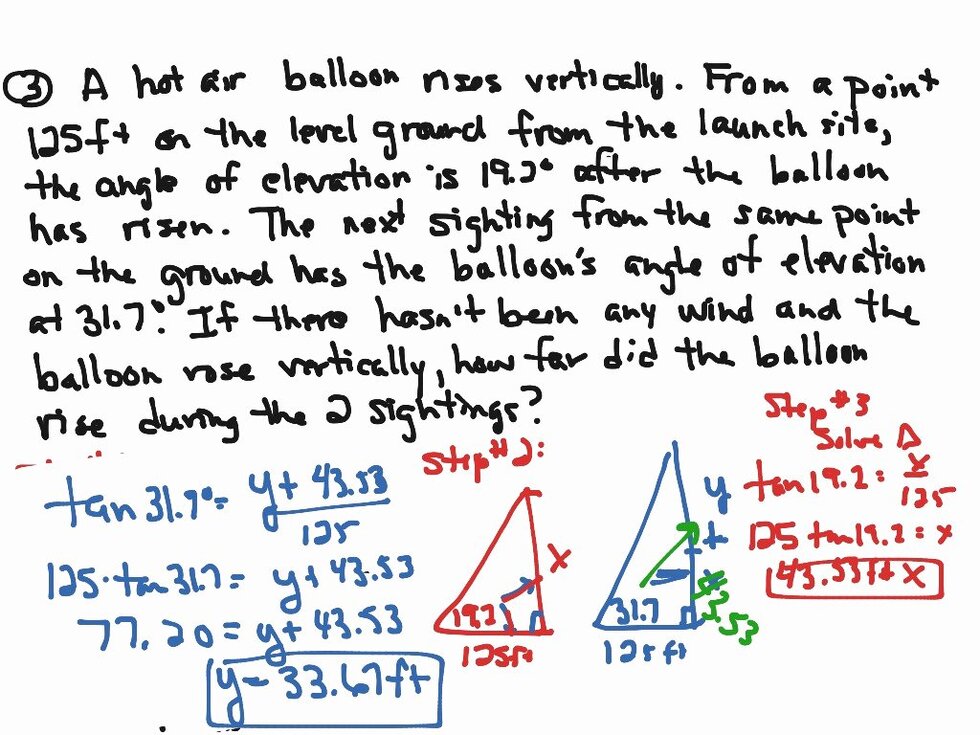 ③ A hot air balloon rises vertically. From a point
125ft on the level ground from the launch site,
the angle of elevation is 19.2° after the balloon
has risen. The next sighting from the same point
on the ground has the balloon's angle of elevation
at 31.7°. If there hasn't been any wind and the
balloon rose vertically, how far did the balloon
rise during the 2 sightings?
tan 31.7° = y + 43.53
125
125 · tan 31.7 = y + 43.53
77.20 = y + 43.53
y = 33.67ft
Step #2:
x
19.2
125ft
y
+
31.7
125 ft
Step #3
Solve Δ
tan 19.2 = x
125
125 tan 19.2 = x
43.53ft x